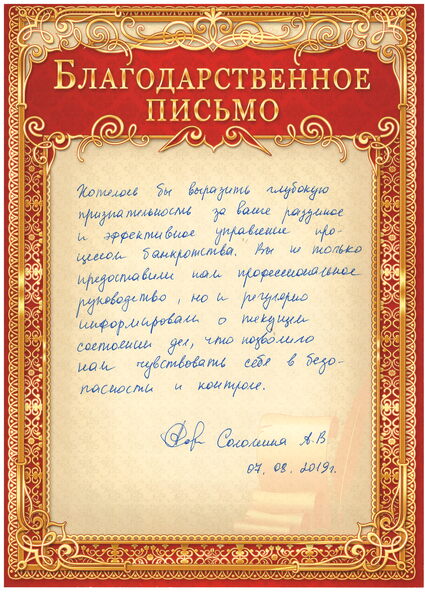 БЛАГОДАРСТВЕННОЕ
ПИСЬМО
Хотелось бы выразить глубокую
признательность за ваше разумное
и эффективное управление про-
цессом банкротства. Вы не только
предоставили нам профессиональное
руководство, но и регулярно
информировали о текущем
состоянии дел, что позволило
нам чувствовать себя в безо-
пасности и контроле.
А.В
07.08.2019г.